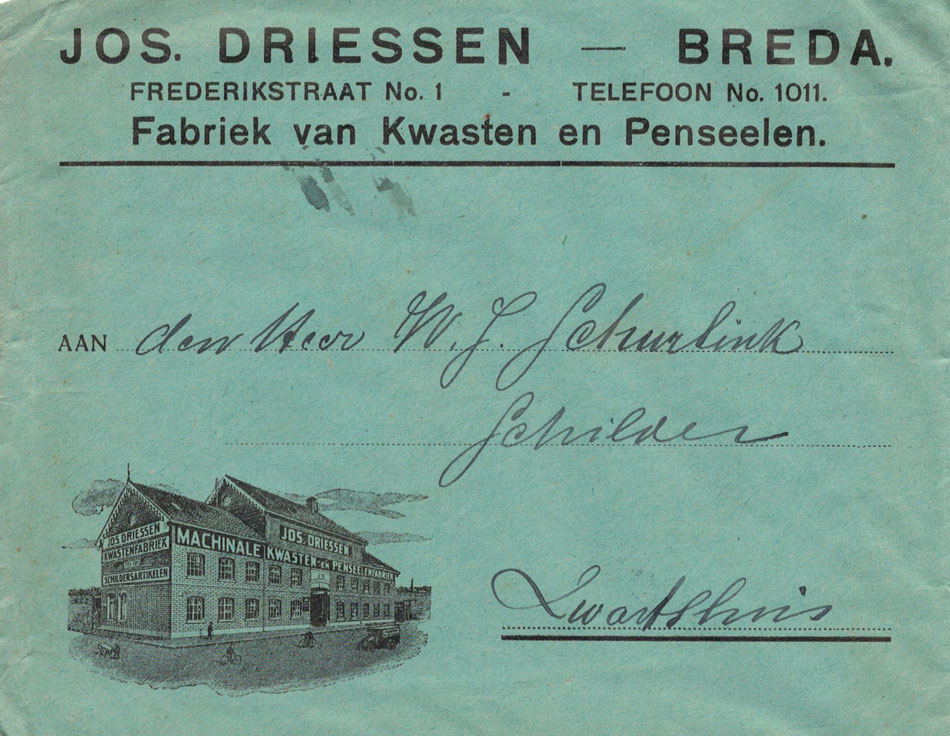 JOS. DRIESSEN — BREDA.
FREDERIKSTRAAT No. 1 - TELEFOON No. 1011.
Fabriek van Kwasten en Penseelen.
AAN den Heer W. J. Schurlink
Schilder
JOS. DRIESSEN
KWASTENFABRIEK
SCHILDERSARTIKELEN
MACHINALE
JOS. DRIESSEN
KWASTEN- EN PENSEELENFABRIEK
Zwartsluis